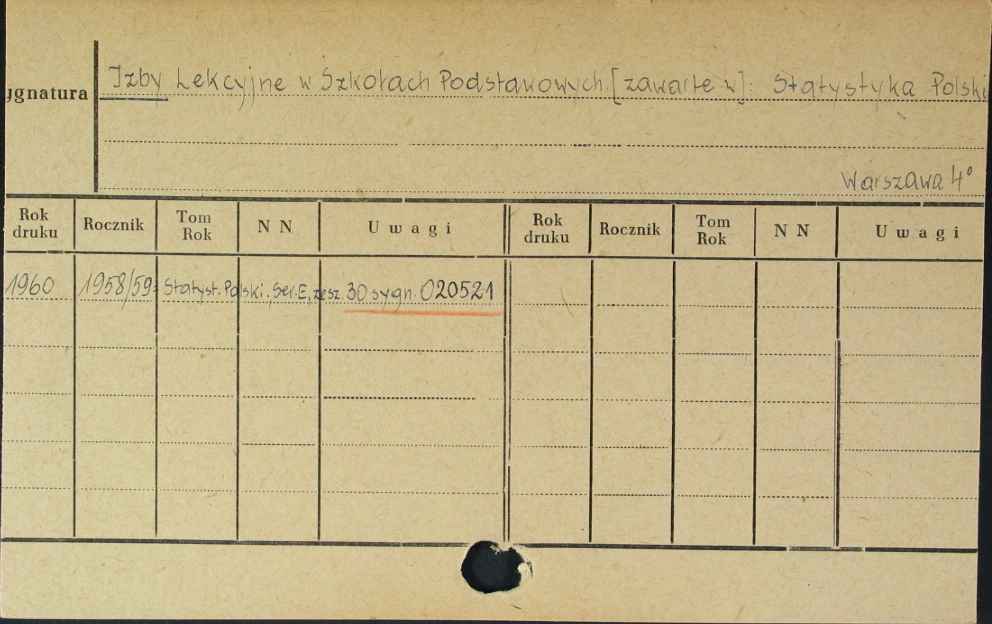 Izby Lekcyjne w Szkołach Podstawowych [zawarte w]: Statystyka Polski
ygnatura
Warszawa 4°
Rok druku Rocznik Tom Rok N N Uwagi Rok druku Rocznik Tom Rok N N Uwagi
1960 1958/59: Statyst. Polski. Ser. E, zesz. 30 sygn. 020521